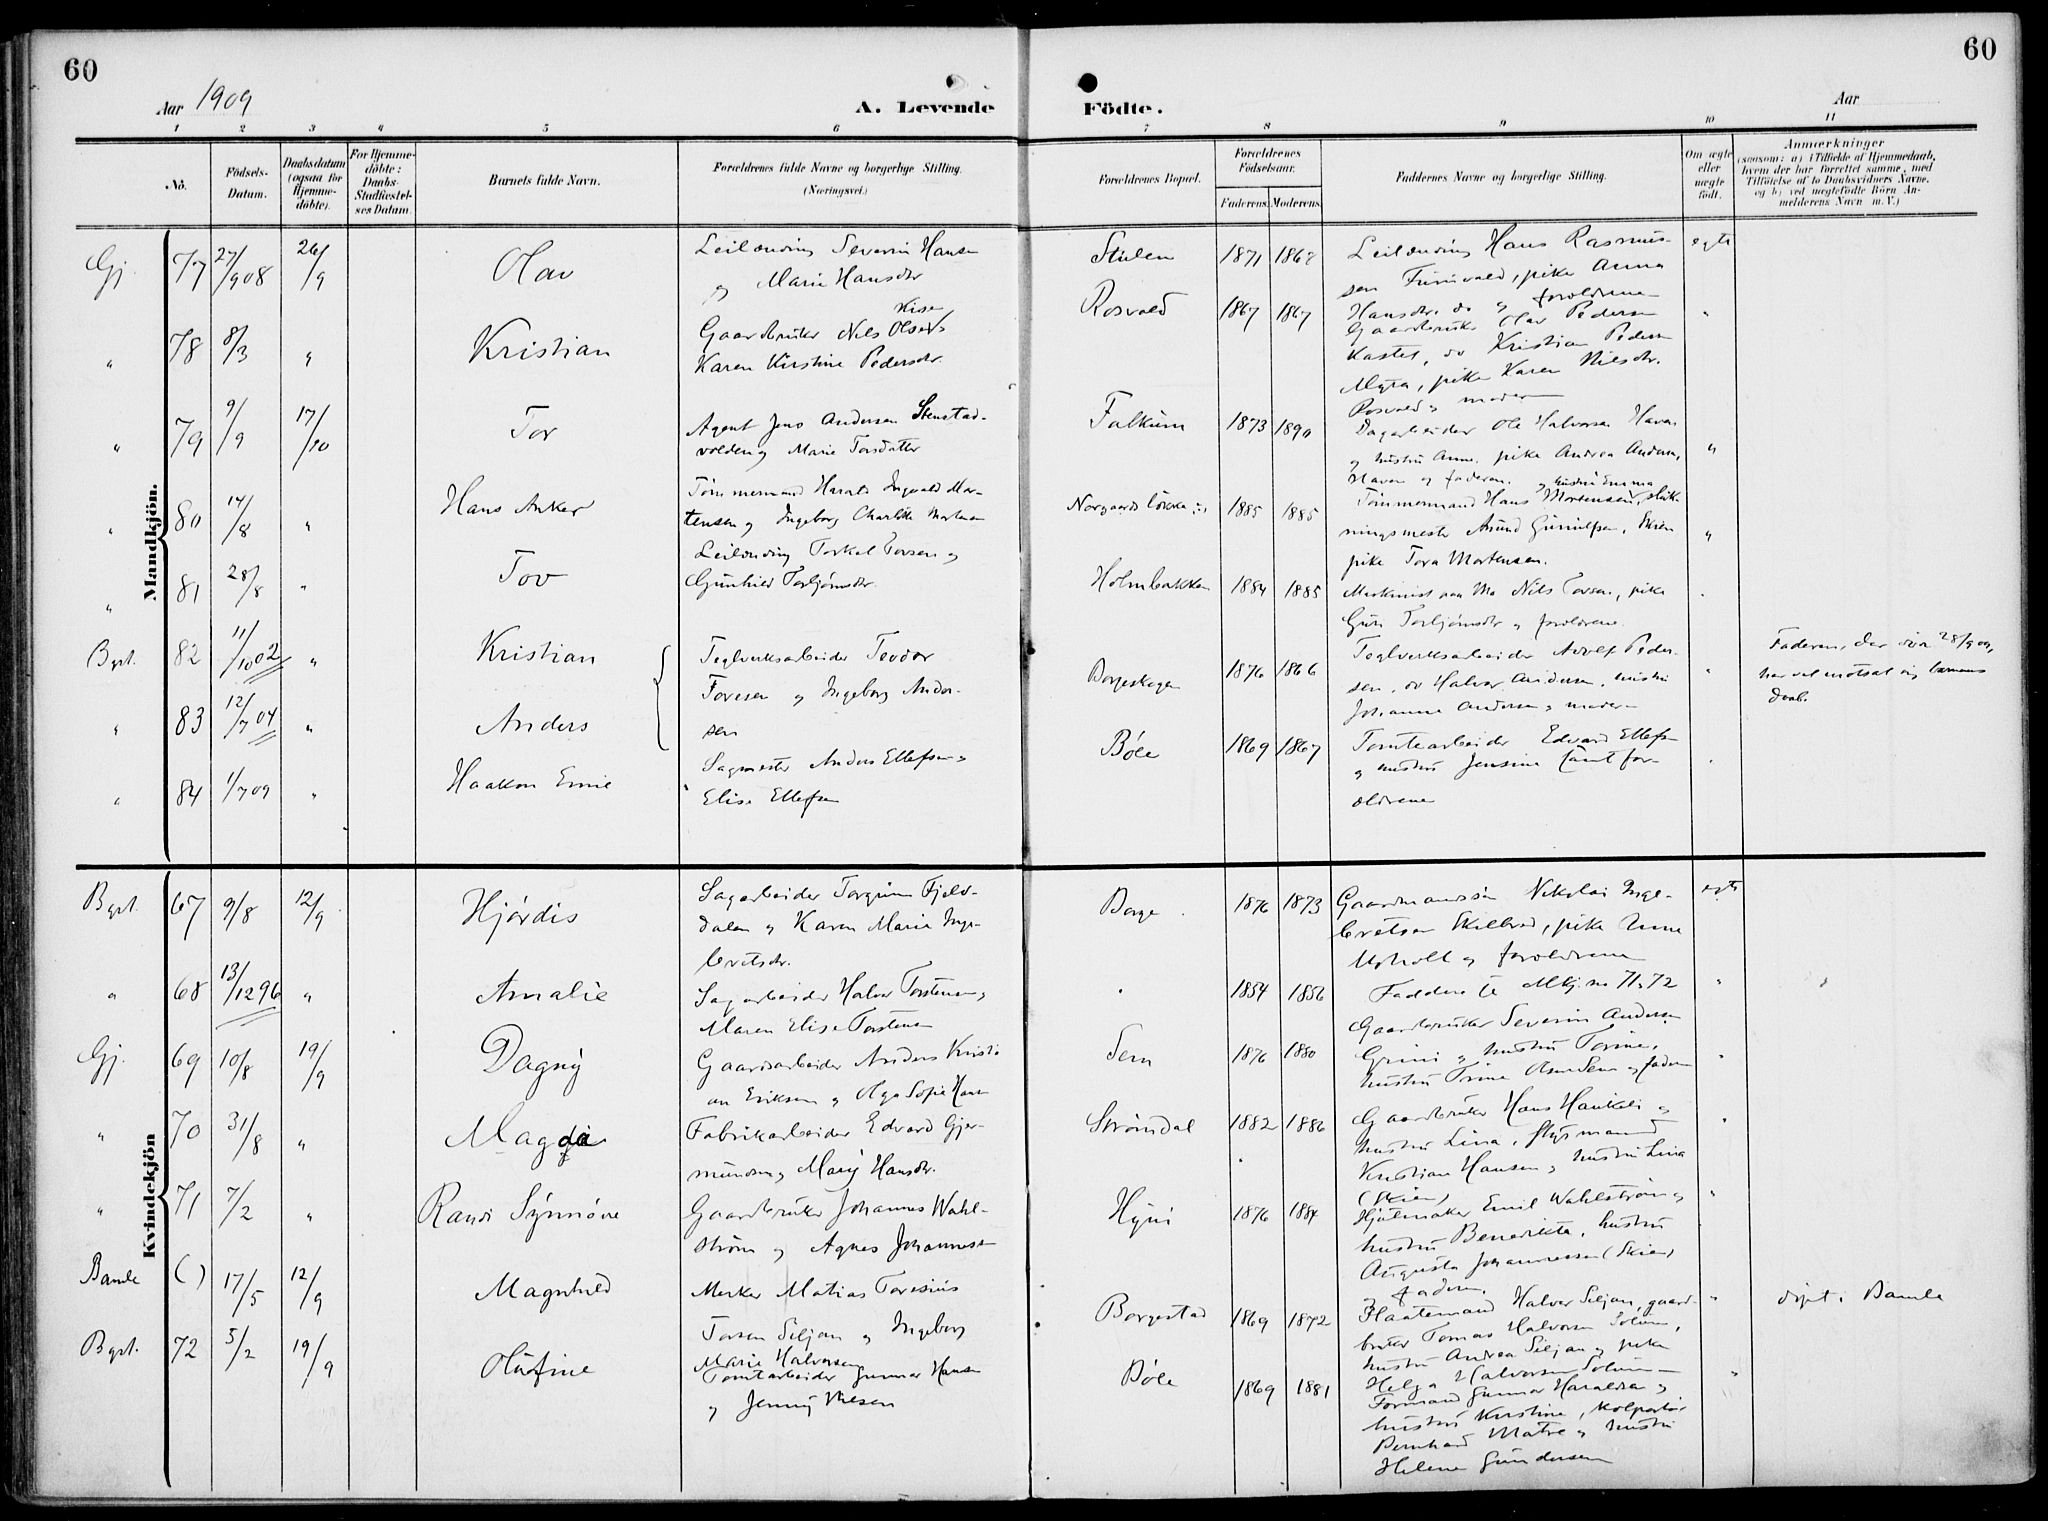 60
60
Aar 1909
A. Levende
Födte.
Aar
1 2 3 4 5 6 7 8 9 10 11
No.
Födsels-Datum.
Daabsdatum (ogsaa for Hjemme-döbte).
For Hjemme-döbte: Daabs-Stadfæstel-ses Datum.
Barnets fulde Navn.
Forældrenes fulde Navne og borgerlige Stilling. (Næringsvei.)
Forældrenes Bopæl.
Forældrenes Födselsaar.
Faderens. Moderens.
Faddernes Navne og borgerlige Stilling.
Om ægte eller uægte födt.
Anmærkninger
(saasom: a) i Tilfælde af Hjemmedaab, hvem der har forrettet samme, med Tilföielse af to Daabsvidners Navne, og b) ved uægtefödte Börn An-melderens Navn m. V.)
Mandkjön.
Gj. 77 27/908 26/9 Olav
Leilænding Severin Hansen
og Marie Hansdtr
Stulen 1871
Leilænding Hans Rasmus-
sen , pike Anna
Hansdtr. do og forældrene
egte
" 78 8/3 " Kristian
Gaardbruker Nils Olsen
Karen Kirstine Pedersdtr.
Rosvald 1867 1867
Gaardbruker Olav Pedersen
Kastet, do Kristian Pedersen
Myra, pike Karen Nilsdtr.
Rosvald og moderen
"
" 79 9/9 17/10 Tor
Agent Jens Andersen Stenstad-
volden og Marie Torsdatter
Falkum 1873 1890
Dagarbeider Ole Halvorsen Haven
og hustru Anne, pike Andrea Andersen,
Haven og faderen.
"
" 80 14/8 " Hans Anker
Tømmermand Harald Ingvald Mor-
tensen og Ingeborg Charlotte Mortensen
1885 1885
og hustru Emma
Tømmermand Hans Mortensen,
Skien
pike Tora Mortensen.
"
" 81 28/8 " Tov
Leilænding Torkel Tovsen og
Gunhild Torbjørnsdtr.
Holmbakken 1884 1885
Nils Tovsen, pike
Torbjørnsdtr og forældrene.
Bgst. 82 11/1002 " Kristian
" 83 12/704 " Anders
Teglverksarbeider Teodor
Toresen og Ingeborg Ander-
sen
Borgeskogen 1876 1866
Teglverksarbeider Adolf Peder-
sen, do Halvor Andersen, hustru
Johanne Andersen og moderen
"
Faderen, der
har vel motsat sig barnens
daab.
" 84 1/709 "
Haakon
Sagmester Anders Ellefsen og
Elise Ellefsen
Bøle 1869 1867
Tomtearbeider Edvard Ellefsen
og hustru Jensine samt for-
ældrene
Kvindekjön
Bgst. 67 9/8 12/9 Hjørdis
Sagarbeider Torgrim Fjeld-
dalen og Karen Marie Inge-
bretsdtr.
Borge 1876 1873
Gaardmandssøn Nikolai Inge-
bretsen Skilbred, pike Anne
Moholt og forældrene
egte
" 68 13/1296 " Amalie
Sagarbeider Halvor Torstensen og
Maren Elise Torstensen
" 1854 1856
Faddere se Mkj. no 71, 72
"
Gj. 69 10/8 19/9 Dagny
Gaardsarbeider Anders Kristi-
an Eriksen og Olga Sofie Hansen
Sem 1876 1880
Gaardbruker Severin Andersen
Grini og hustru Torine,
hustru Trine Olsen Sem og faderen
"
" 70 31/8 " Magda
Fabrikarbeider Edvard Gjer-
mundsen og Mary Hansdtr.
Strømdal 1882 1886
Gaardbruker Hans Haukeli og
hustru Lina, flytmand
Kristian Hansen og hustru Lina
(Skien)
"
" 71 7/2 " Randi Synnøve
Gaardbruker Johannes Wahl-
strøm og Agnes Johannesen
Hyni 1876 1884
Hjulmaker Emil Wahlstrøm og
hustru Benedikte, hustru
Augusta Johannessen (Skien)
og faderen.
"
Bamle ( ) 17/5 12/9 Magnhild
Merker Matias Toresius
Torsen Siljan og Ingeborg
Marie Halvorsen
Borgestad 1869 1872
Flaatemand Halvor Siljan, gaard-
bruker Tomas Halvorsen Solum,
hustru Andrea Siljan og pike
Helga Halvorsen Solum
"
døpt i Bamle
Bgst. 72 5/2 19/9 Olufine
Tomtarbeider Gunnar Hansen
og Jenny Nilsen
Bøle 1869 1881
Formand Gunnar Haraldsen og
hustru Kirstine, kolportør
Bernhard Matre og hustru
Helene Gundersen
"